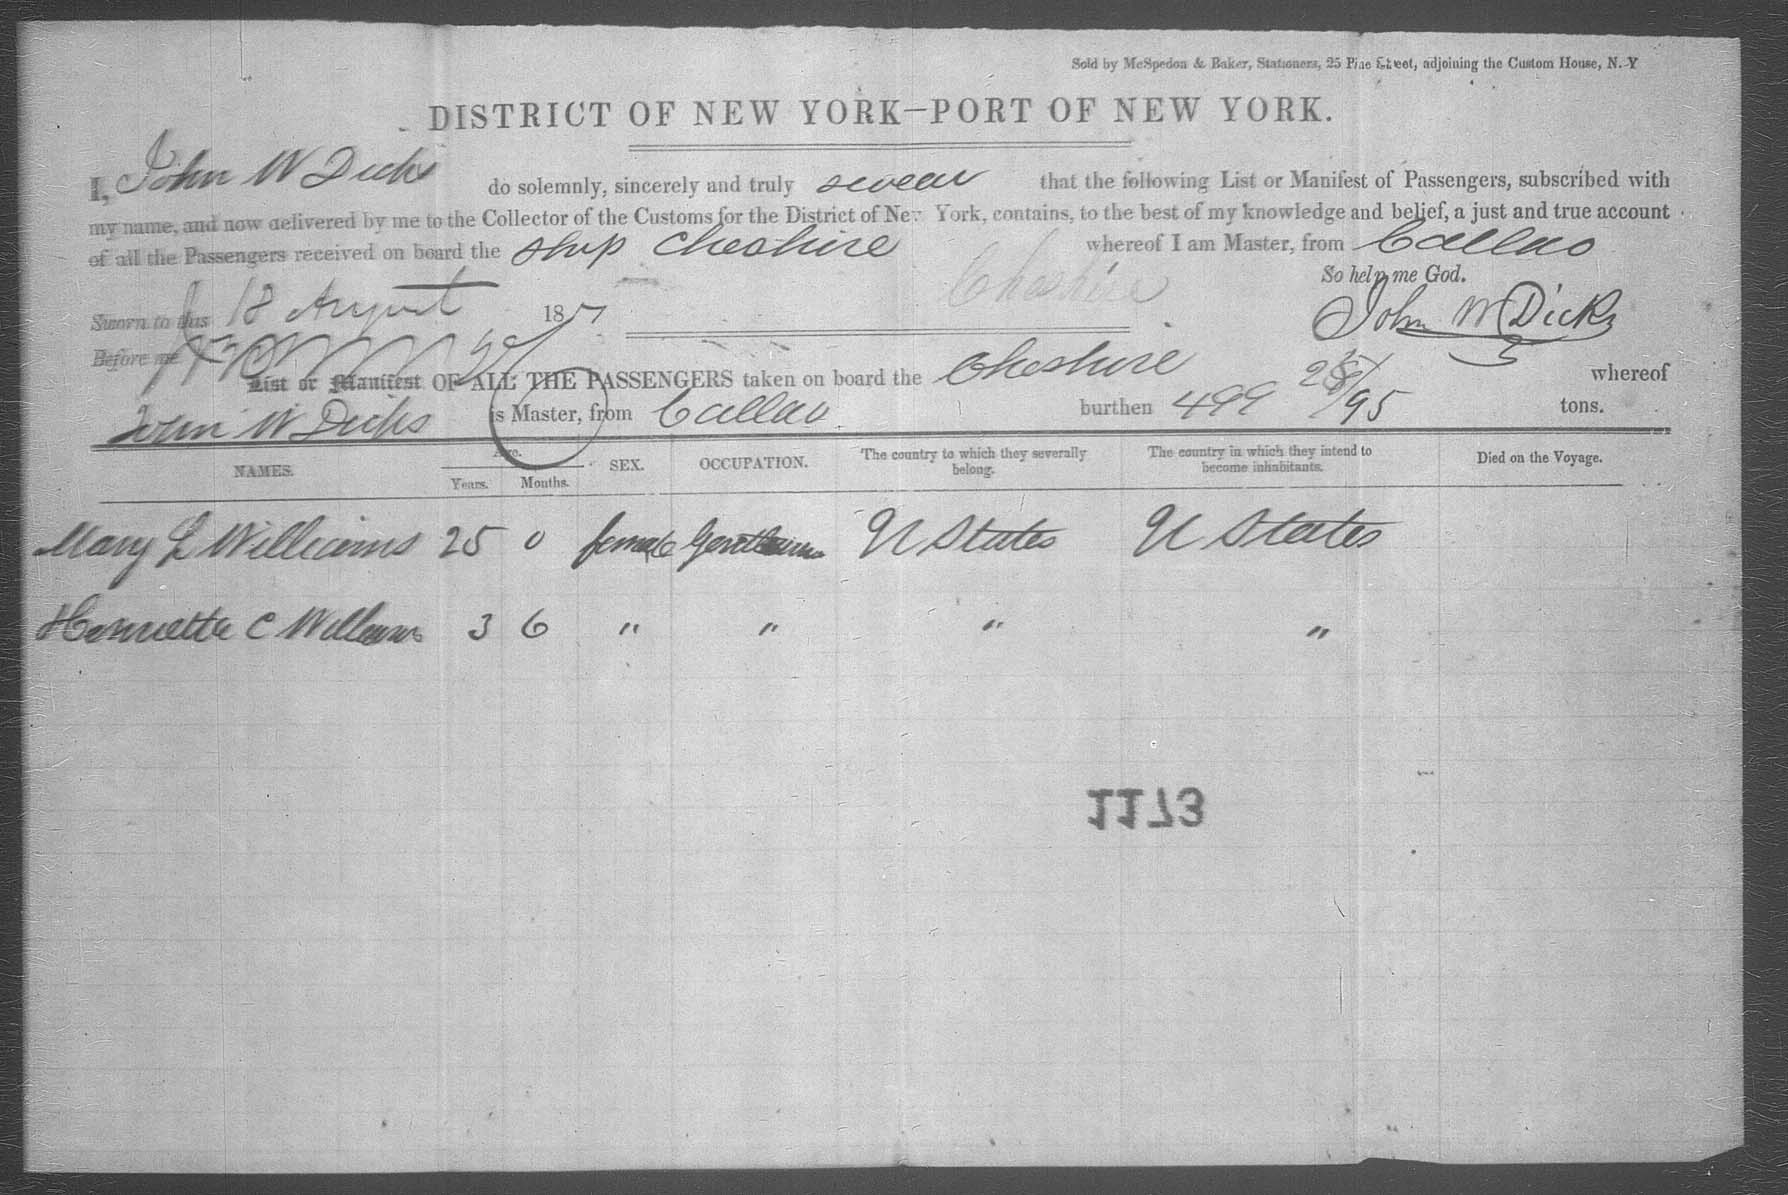 Sold by McSpedon & Baker, Stationers, 25 Pine Street, adjoining the Custom House, N.-Y
DISTRICT OF NEW YORK—PORT OF NEW YORK.
I, John W Dicks do solemnly, sincerely and truly swear that the following List or Manifest of Passengers, subscribed with
my name, and now delivered by me to the Collector of the Customs for the District of New York, contains, to the best of my knowledge and belief, a just and true account
of all the Passengers received on board the Ship Cheshire whereof I am Master, from Callao
So help me God.
Cheshire
Sworn to this 18 August 1857
John W Dicks
Before me
List or Manifest OF ALL THE PASSENGERS taken on board the Cheshire whereof
John W Dicks is Master, from Callao burthen 499 /95 tons.
NAMES. Age. Years. Months. SEX. OCCUPATION. The country to which they severally belong. The country in which they intend to become inhabitants. Died on the Voyage.
Mary L Williams 25 0 female U States U States
Henrietta C Williams 3 6 " " " "
1173